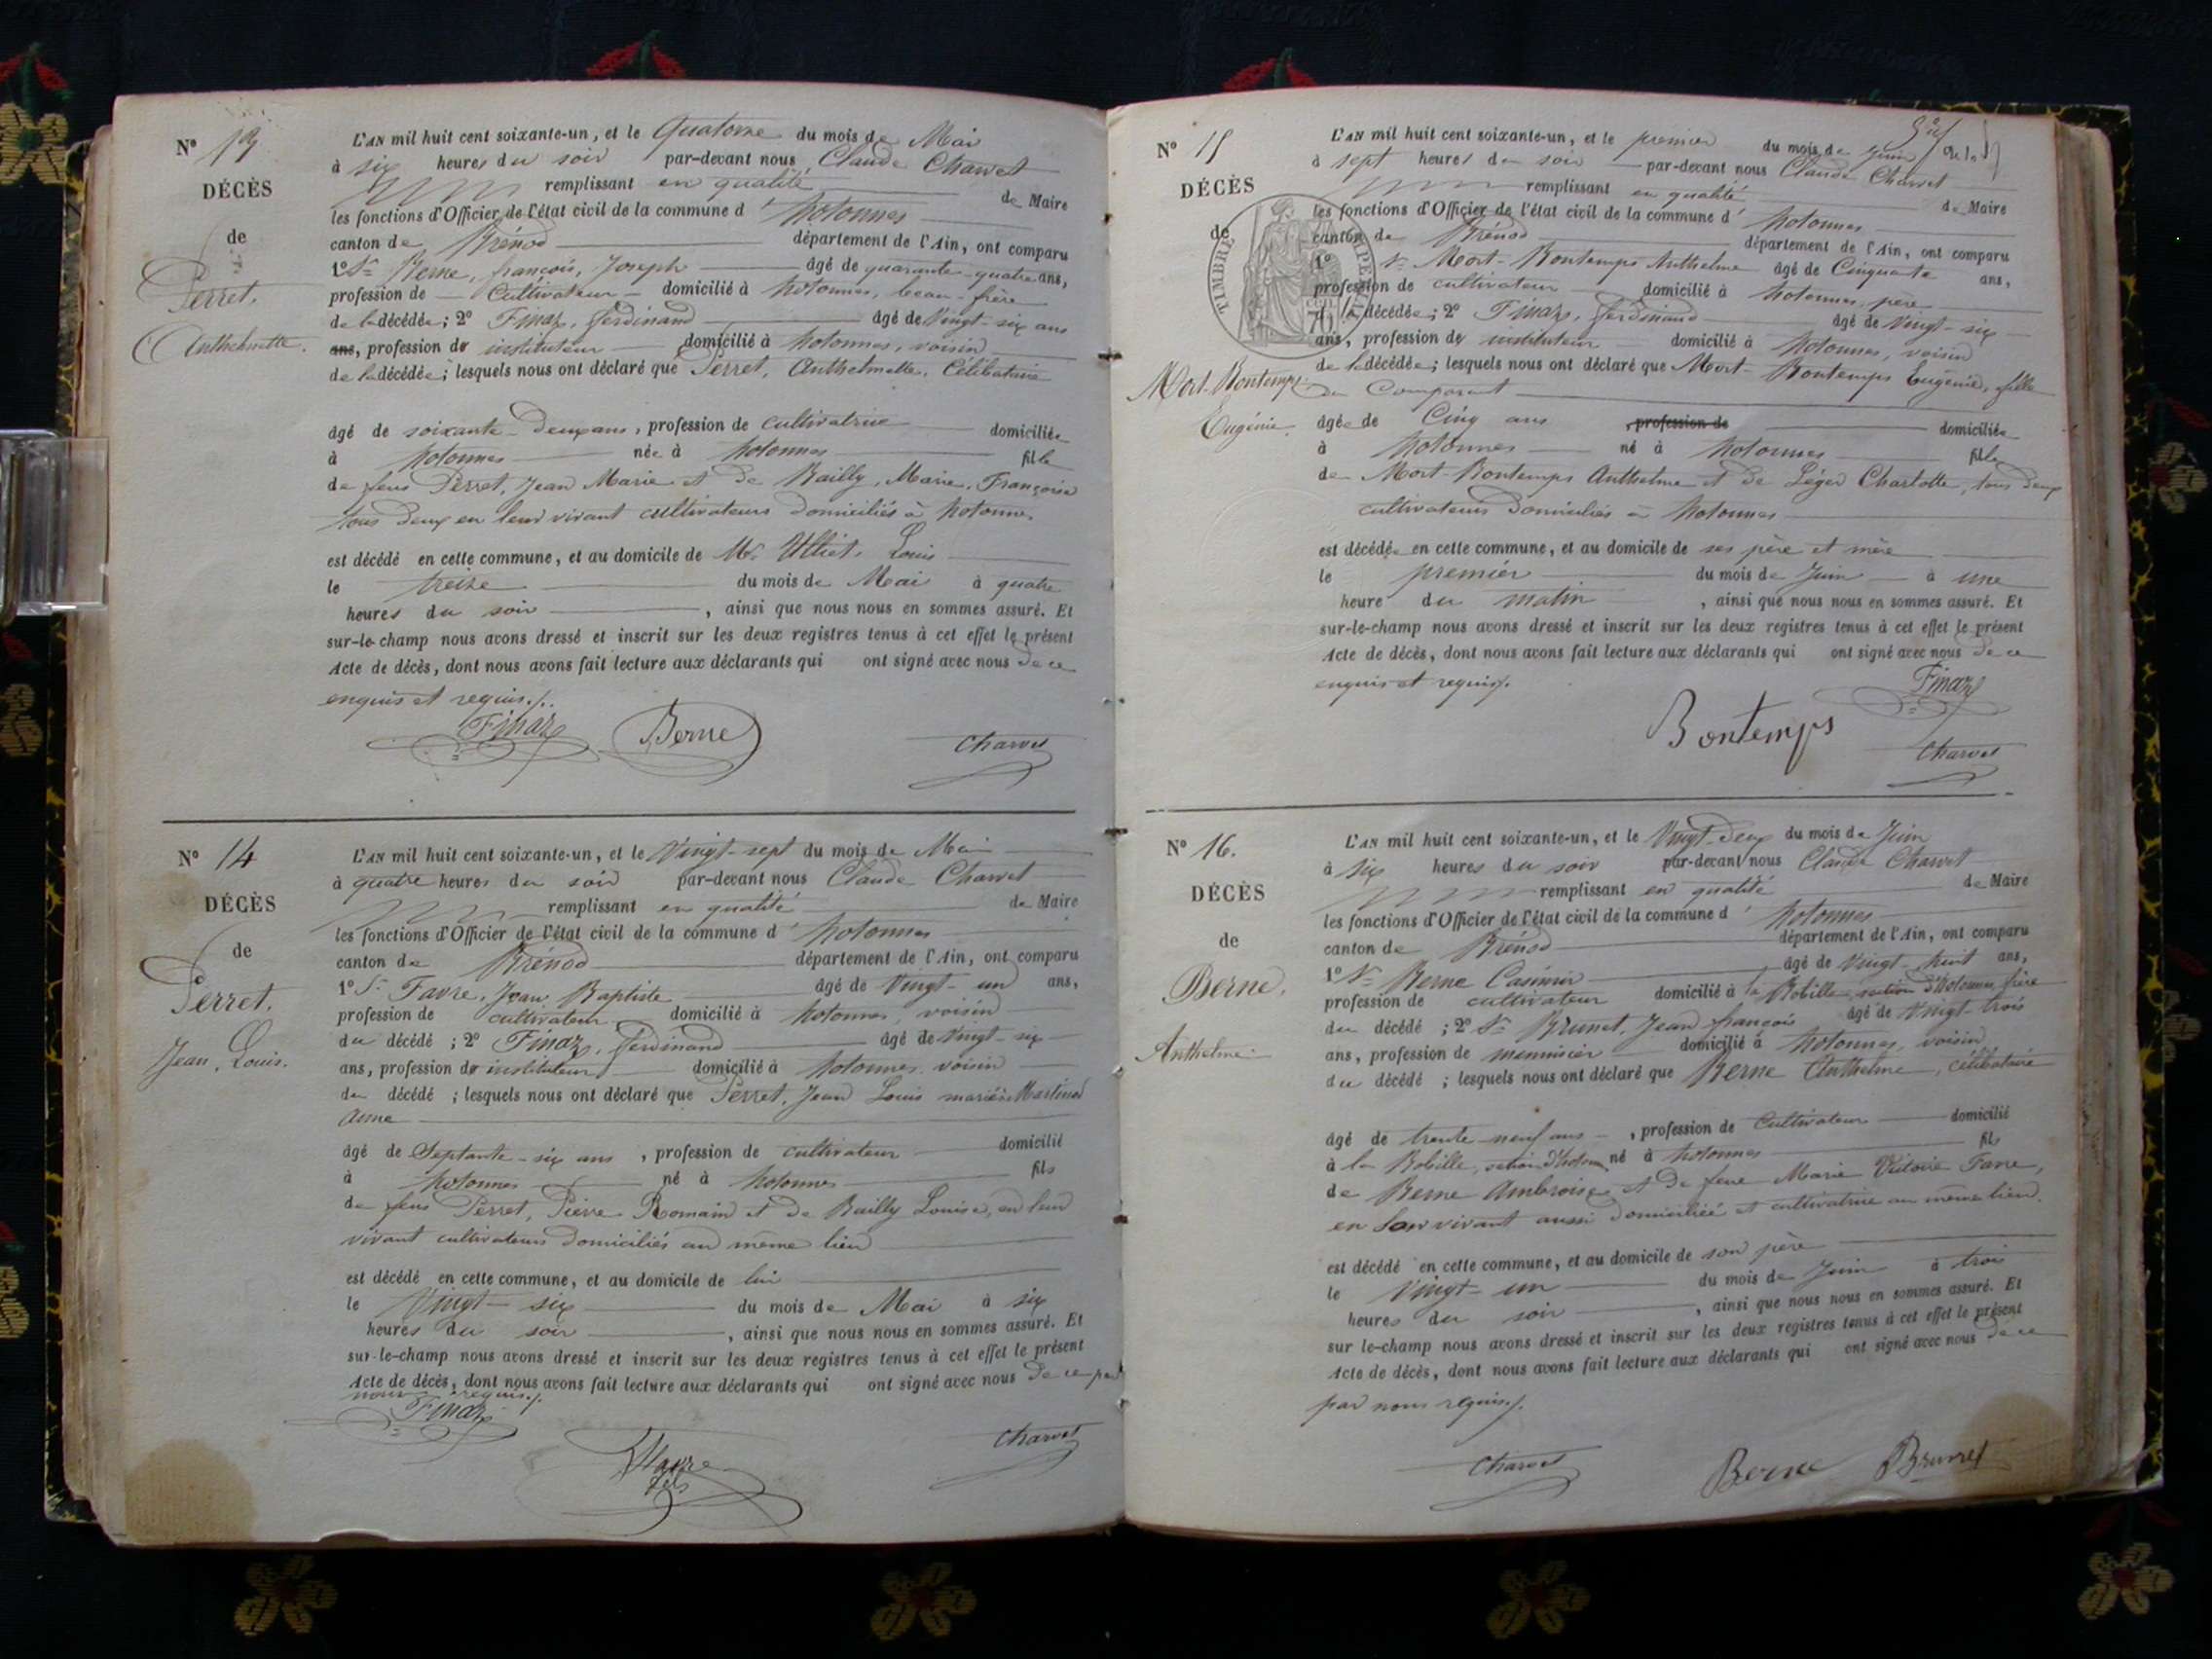 N° 13
DÉCÈS
de
Perret,
Anthelmette.
L'AN mil huit cent soixante-un, et le Quatorze du mois de Mai
à six heures du soir par-devant nous Claude Charvet
remplissant en qualité de Maire
les fonctions d'Officier de l'état civil de la commune d'hotonnes
canton de Brénod département de l'Ain, ont comparu
1° Sr Berne, françois, Joseph âgé de quarante-quatre ans,
profession de Cultivateur domicilié à hotonnes, beau-frère
de la décédée; 2° Finaz, ferdinand âgé de vingt-six ans
ans, profession de instituteur domicilié à hotonnes, voisin
de la décédée; lesquels nous ont déclaré que Perret, Anthelmette, Célibataire
âgé de soixante-deux ans, profession de cultivatrice domiciliée
à hotonnes née à hotonnes fille
de feus Perret, Jean Marie et de Bailly, Marie, Françoise
tous deux en leur vivant cultivateurs domiciliés à hotonnes.
est décédé en cette commune, et au domicile de Mr Ulliet, Louis
le treize du mois de Mai à quatre
heures du soir, ainsi que nous nous en sommes assuré. Et
sur-le-champ nous avons dressé et inscrit sur les deux registres tenus à cet effet le présent
Acte de décès, dont nous avons fait lecture aux déclarants qui ont signé avec nous de ce
enquis et requis./.
Finaz Berne Charvet
N° 14
DÉCÈS
de
Perret,
Jean, Louis.
L'AN mil huit cent soixante-un, et le Vingt-sept du mois de Mai
à quatre heures du soir par-devant nous Claude Charvet
remplissant en qualité de Maire
les fonctions d'Officier de l'état civil de la commune d'hotonnes
canton de Brénod département de l'Ain, ont comparu
1° Sr Favre, Jean Baptiste âgé de Vingt-un ans,
profession de cultivateur domicilié à hotonnes voisin
du décédé; 2° Finaz, ferdinand âgé de vingt-six
ans, profession de instituteur domicilié à hotonnes voisin
du décédé; lesquels nous ont déclaré que Perret, Jean Louis marié à Martinod
Anne
âgé de Septante-six ans, profession de cultivateur domicilié
à hotonnes né à hotonnes fils
de feus Perret, Pierre Romain et de Bailly Louise, en leur
vivant cultivateurs domiciliés au même lieu
est décédé en cette commune, et au domicile de lui
le Vingt-six du mois de Mai à six
heures du soir, ainsi que nous nous en sommes assuré. Et
sur-le-champ nous avons dressé et inscrit sur les deux registres tenus à cet effet le présent
Acte de décès, dont nous avons fait lecture aux déclarants qui ont signé avec nous de ce par
nous requis./.
Finaz
Favre fils
Charvet
N° 15
DÉCÈS
de
Mort-Bontemps
Eugénie.
TIMBRE IMPERIAL
70 cen.
L'AN mil huit cent soixante-un, et le premier du mois de Juin
à sept heures du soir par-devant nous Claude Charvet
remplissant en qualité de Maire
les fonctions d'Officier de l'état civil de la commune d'hotonnes
canton de Brénod département de l'Ain, ont comparu
1° Sr Mort-Bontemps Anthelme âgé de Cinquante ans,
profession de cultivateur domicilié à hotonnes, père
de la décédée; 2° Finaz, ferdinand âgé de vingt-six
ans, profession de instituteur domicilié à hotonnes, voisin
de la décédée; lesquels nous ont déclaré que Mort-Bontemps Eugénie, fille
du Comparant
âgée de Cinq ans, profession de domiciliée
à hotonnes né à hotonnes fille
de Mort-Bontemps Anthelme et de Léger Charlotte, tous deux
cultivateurs domiciliés à hotonnes
est décédée en cette commune, et au domicile de ses père et mère
le premier du mois de Juin à une
heure du matin, ainsi que nous nous en sommes assuré. Et
sur-le-champ nous avons dressé et inscrit sur les deux registres tenus à cet effet le présent
Acte de décès, dont nous avons fait lecture aux déclarants qui ont signé avec nous de ce
enquis et requis./.
Finaz
Bontemps
Charvet
N° 16.
DÉCÈS
de
Berne,
Anthelme
L'AN mil huit cent soixante-un, et le Vingt-deux du mois de Juin
à six heures du soir par-devant nous Claude Charvet
remplissant en qualité de Maire
les fonctions d'Officier de l'état civil de la commune d'hotonnes
canton de Brénod département de l'Ain, ont comparu
1° Sr Berne Casimir âgé de vingt-huit ans,
profession de cultivateur domicilié à la Robille, section d'hotonnes, frère
du décédé; 2° Sr Brunet, Jean françois âgé de vingt-trois
ans, profession de menuisier domicilié à hotonnes, voisin
du décédé; lesquels nous ont déclaré que Berne Anthelme, célibataire
âgé de trente-neuf ans, profession de Cultivateur domicilié
à la Robille, section d'hotonnes né à hotonnes fils
de Berne Ambroise et de feue Marie Victoire Favre,
en son vivant aussi domiciliée et cultivatrice au même lieu.
est décédé en cette commune, et au domicile de son père
le Vingt-un du mois de Juin à trois
heures du soir, ainsi que nous nous en sommes assuré. Et
sur le-champ nous avons dressé et inscrit sur les deux registres tenus à cet effet le présent
Acte de décès, dont nous avons fait lecture aux déclarants qui ont signé avec nous de ce
par nous requis./.
Charvet Berne Brunet